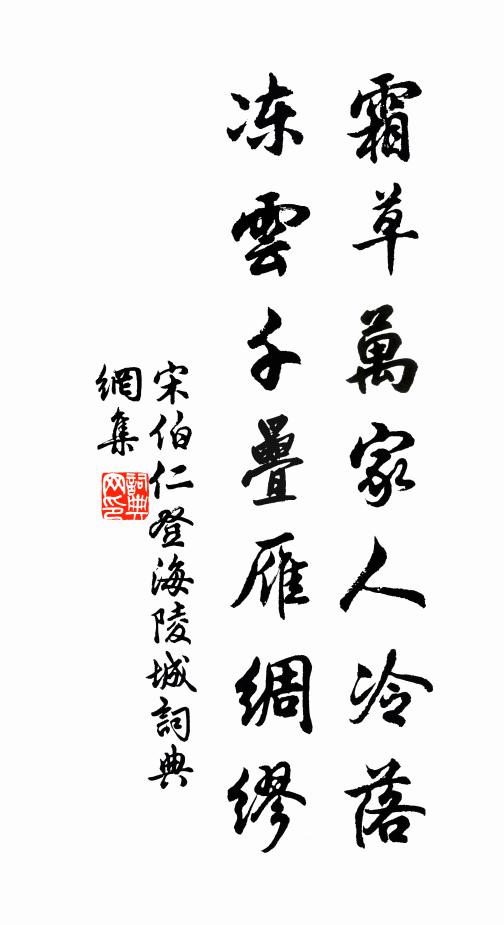 霜草萬家人冷落
冻雲千疊雁綢繆
宋伯仁登海陵城詞典
網集
詞典
网印